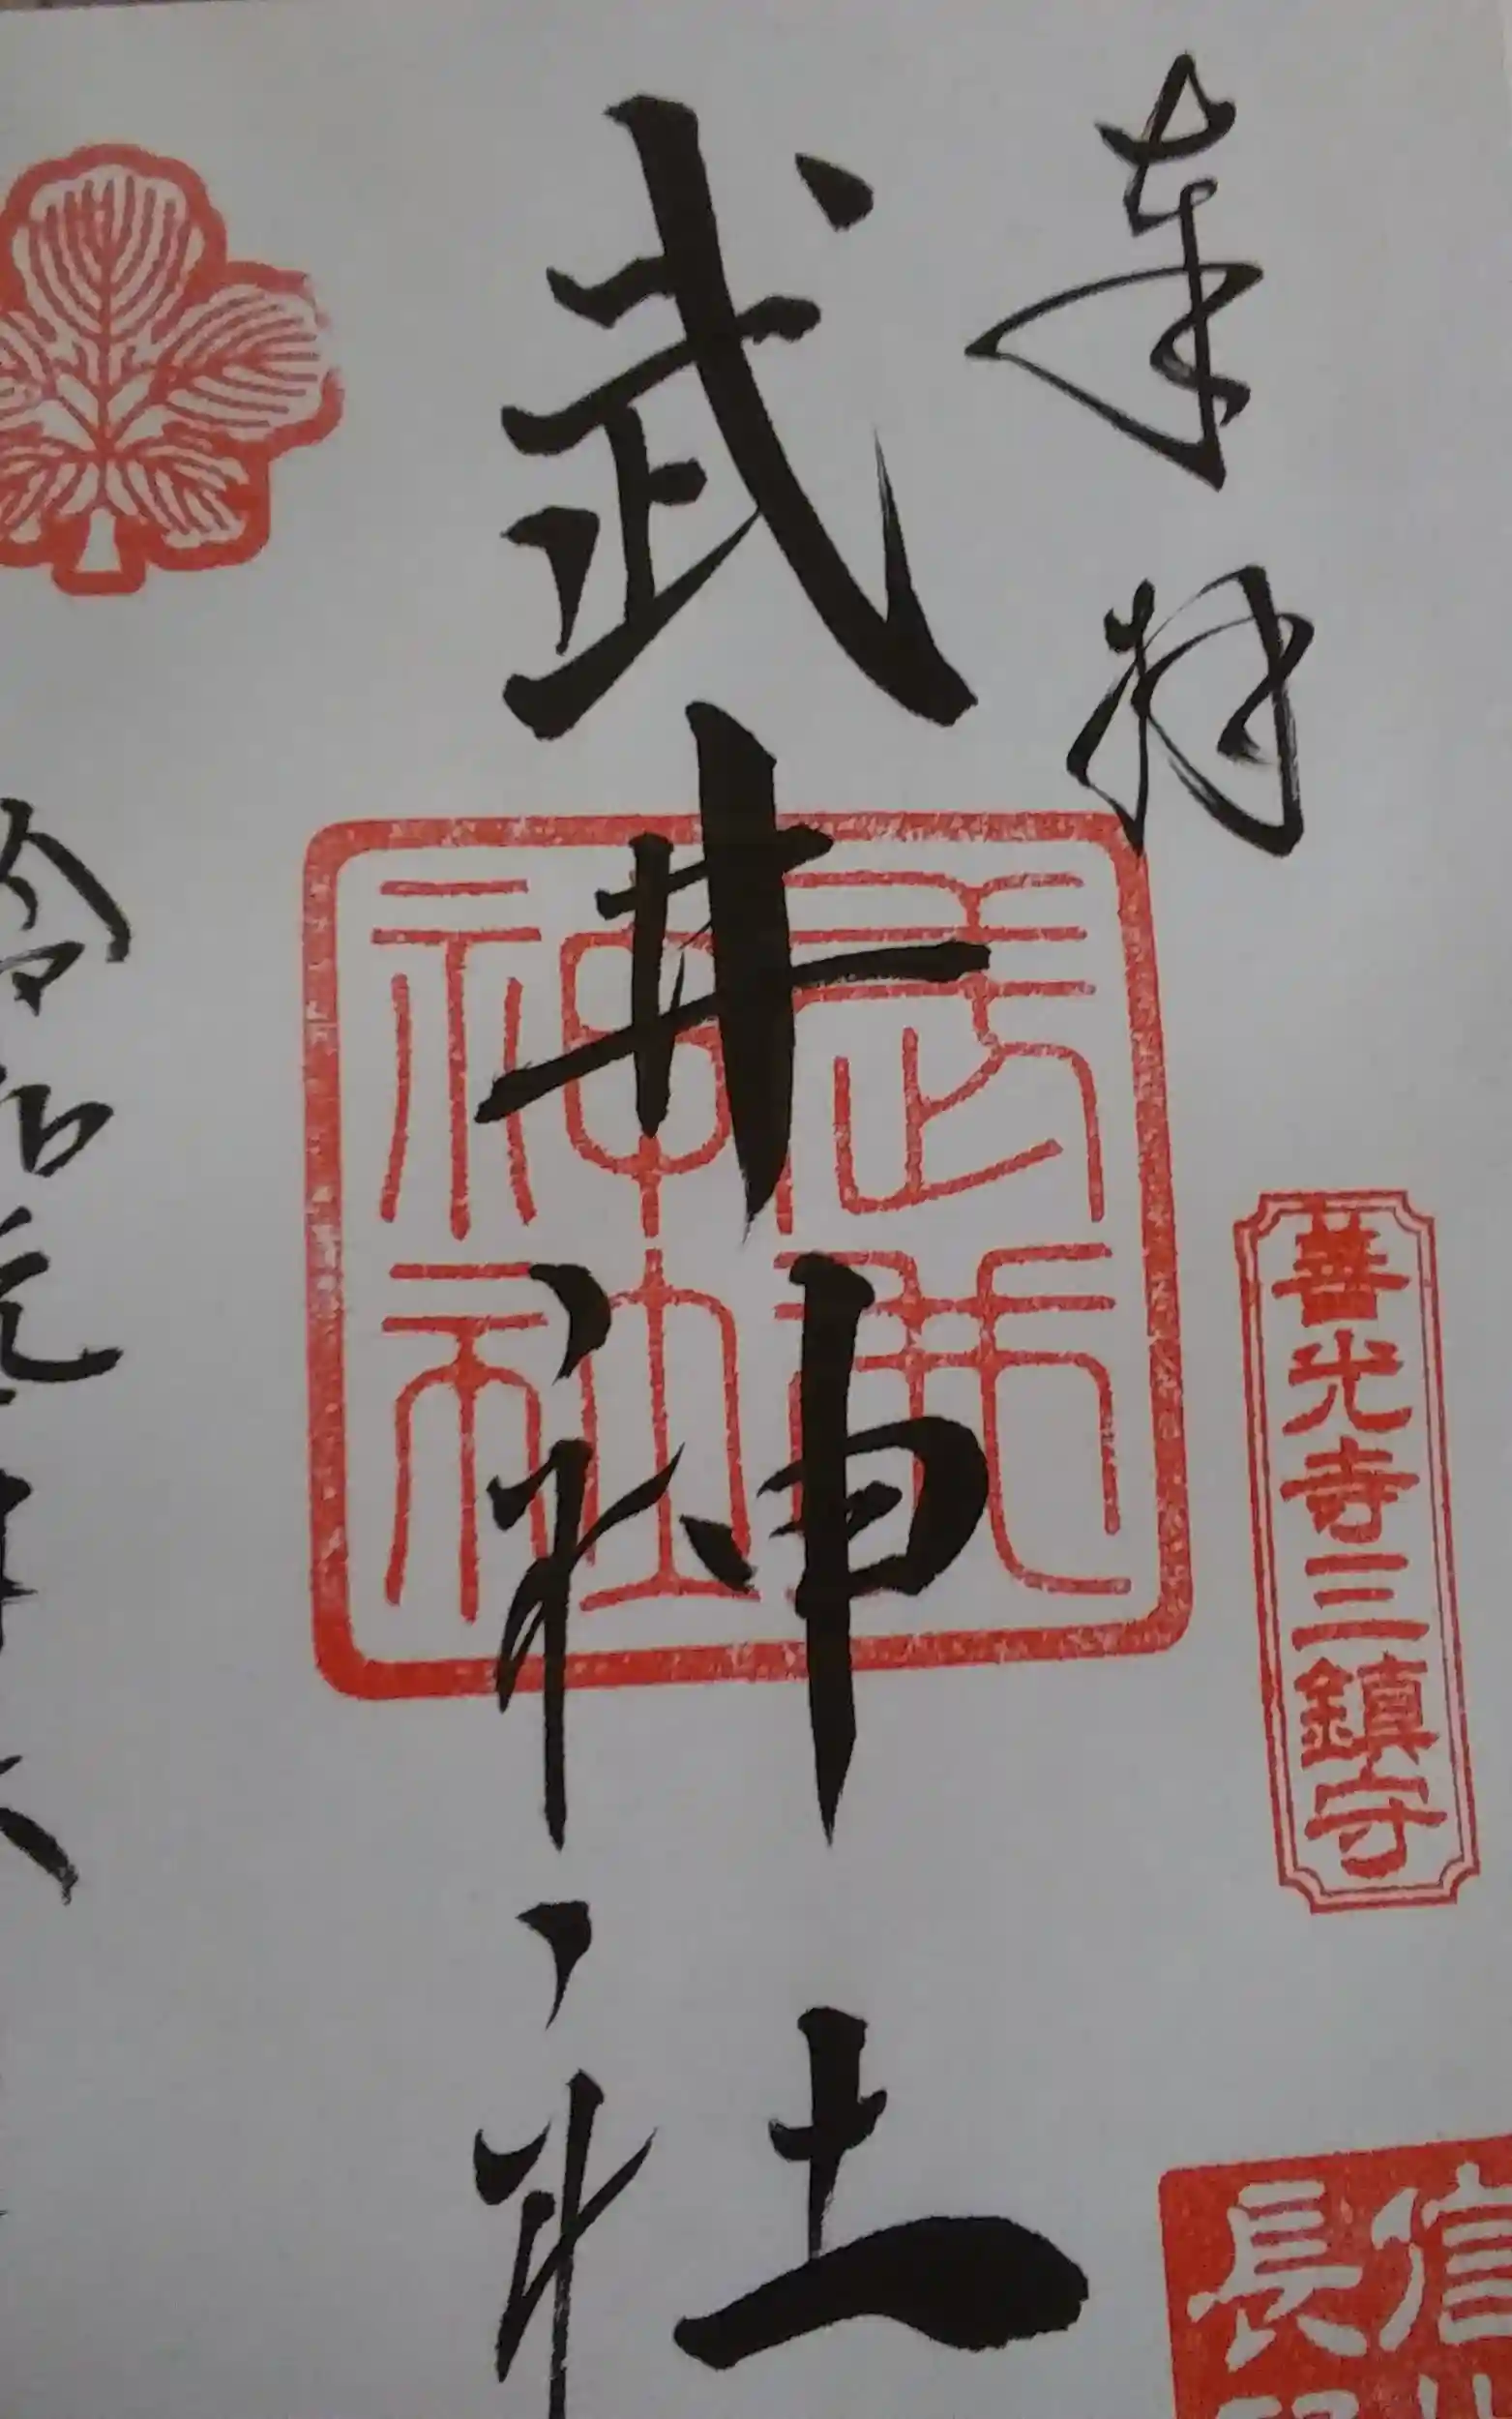 奉拝
善光寺三鎮守
信
長
武井神社
武井
神社
令和元年